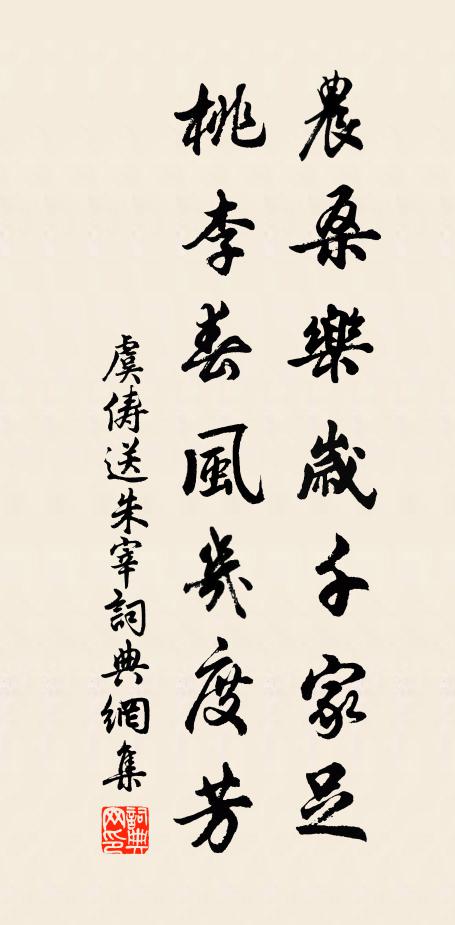 農桑樂歲千家足
桃李春風幾度芳
虞儔送朱宰詞典網集
詞典网印